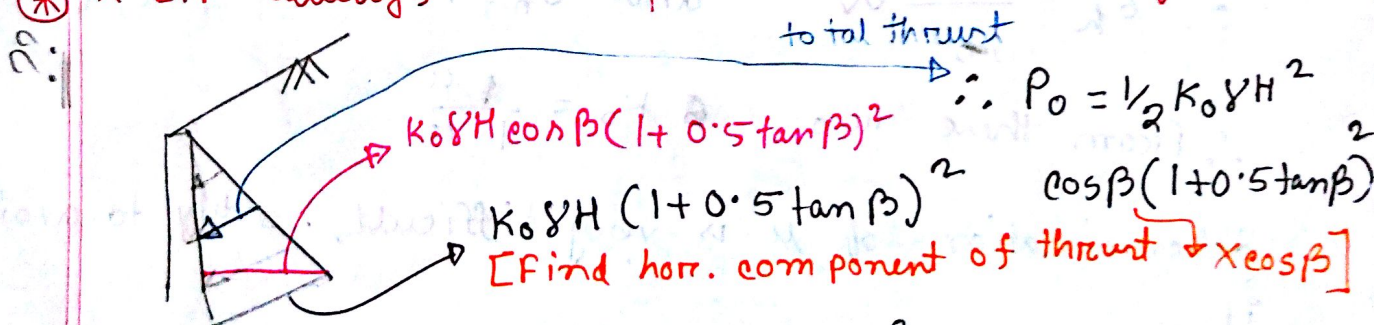 total thrust
∴ P₀ = 1/2 K₀γH²
cosβ(1+0.5tanβ)²
K₀γH cosβ(1+ 0.5tanβ)²
K₀γH (1+0.5 tanβ)²
[Find horr. component of thrust ↓ xcosβ]